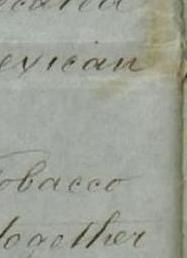 exican
Tobacco
together